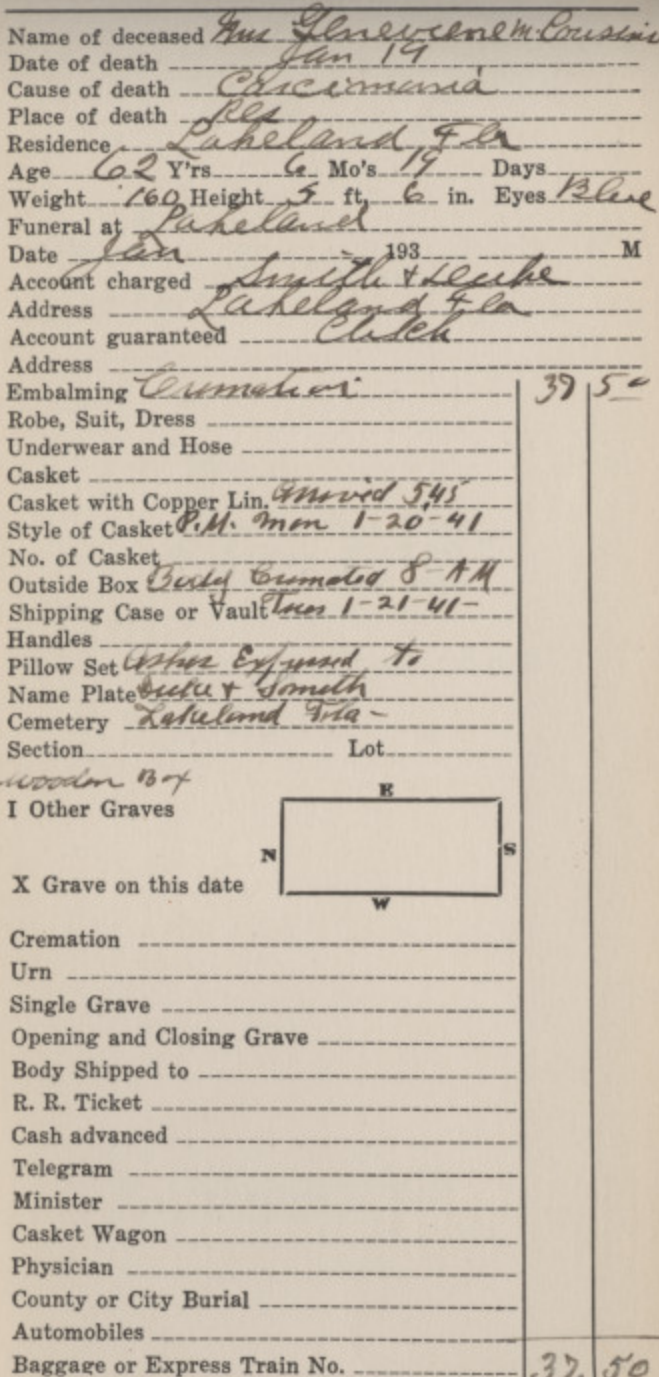 Name of deceased Mrs Genevieve M. Cousins
Date of death Jan 19
Cause of death Carcimania
Place of death Res
Residence Lakeland, Fla
Age 62 Y'rs 6 Mo's 19 Days
Weight 160 Height 5 ft. 6 in. Eyes Blue
Funeral at Lakeland
Date Jan 193 M
Account charged Smith &
Address Lakeland Fla
Account guaranteed
Address
Embalming Cremation 37 50
Robe, Suit, Dress
Underwear and Hose
Casket
Casket with Copper Lin. Arrived 545
Style of Casket P.M. Mon 1-20-41
No. of Casket
Outside Box Body Cremated 8-AM
Shipping Case or Vault Tues 1-21-41-
Handles
Pillow Set Ashes Expressed to
Name Plate & Smith
Cemetery Lakeland Fla-
Section Lot
Wooden Box
E
I Other Graves
N S
X Grave on this date
W
Cremation
Urn
Single Grave
Opening and Closing Grave
Body Shipped to
R. R. Ticket
Cash advanced
Telegram
Minister
Casket Wagon
Physician
County or City Burial
Automobiles
Baggage or Express Train No. 37 50